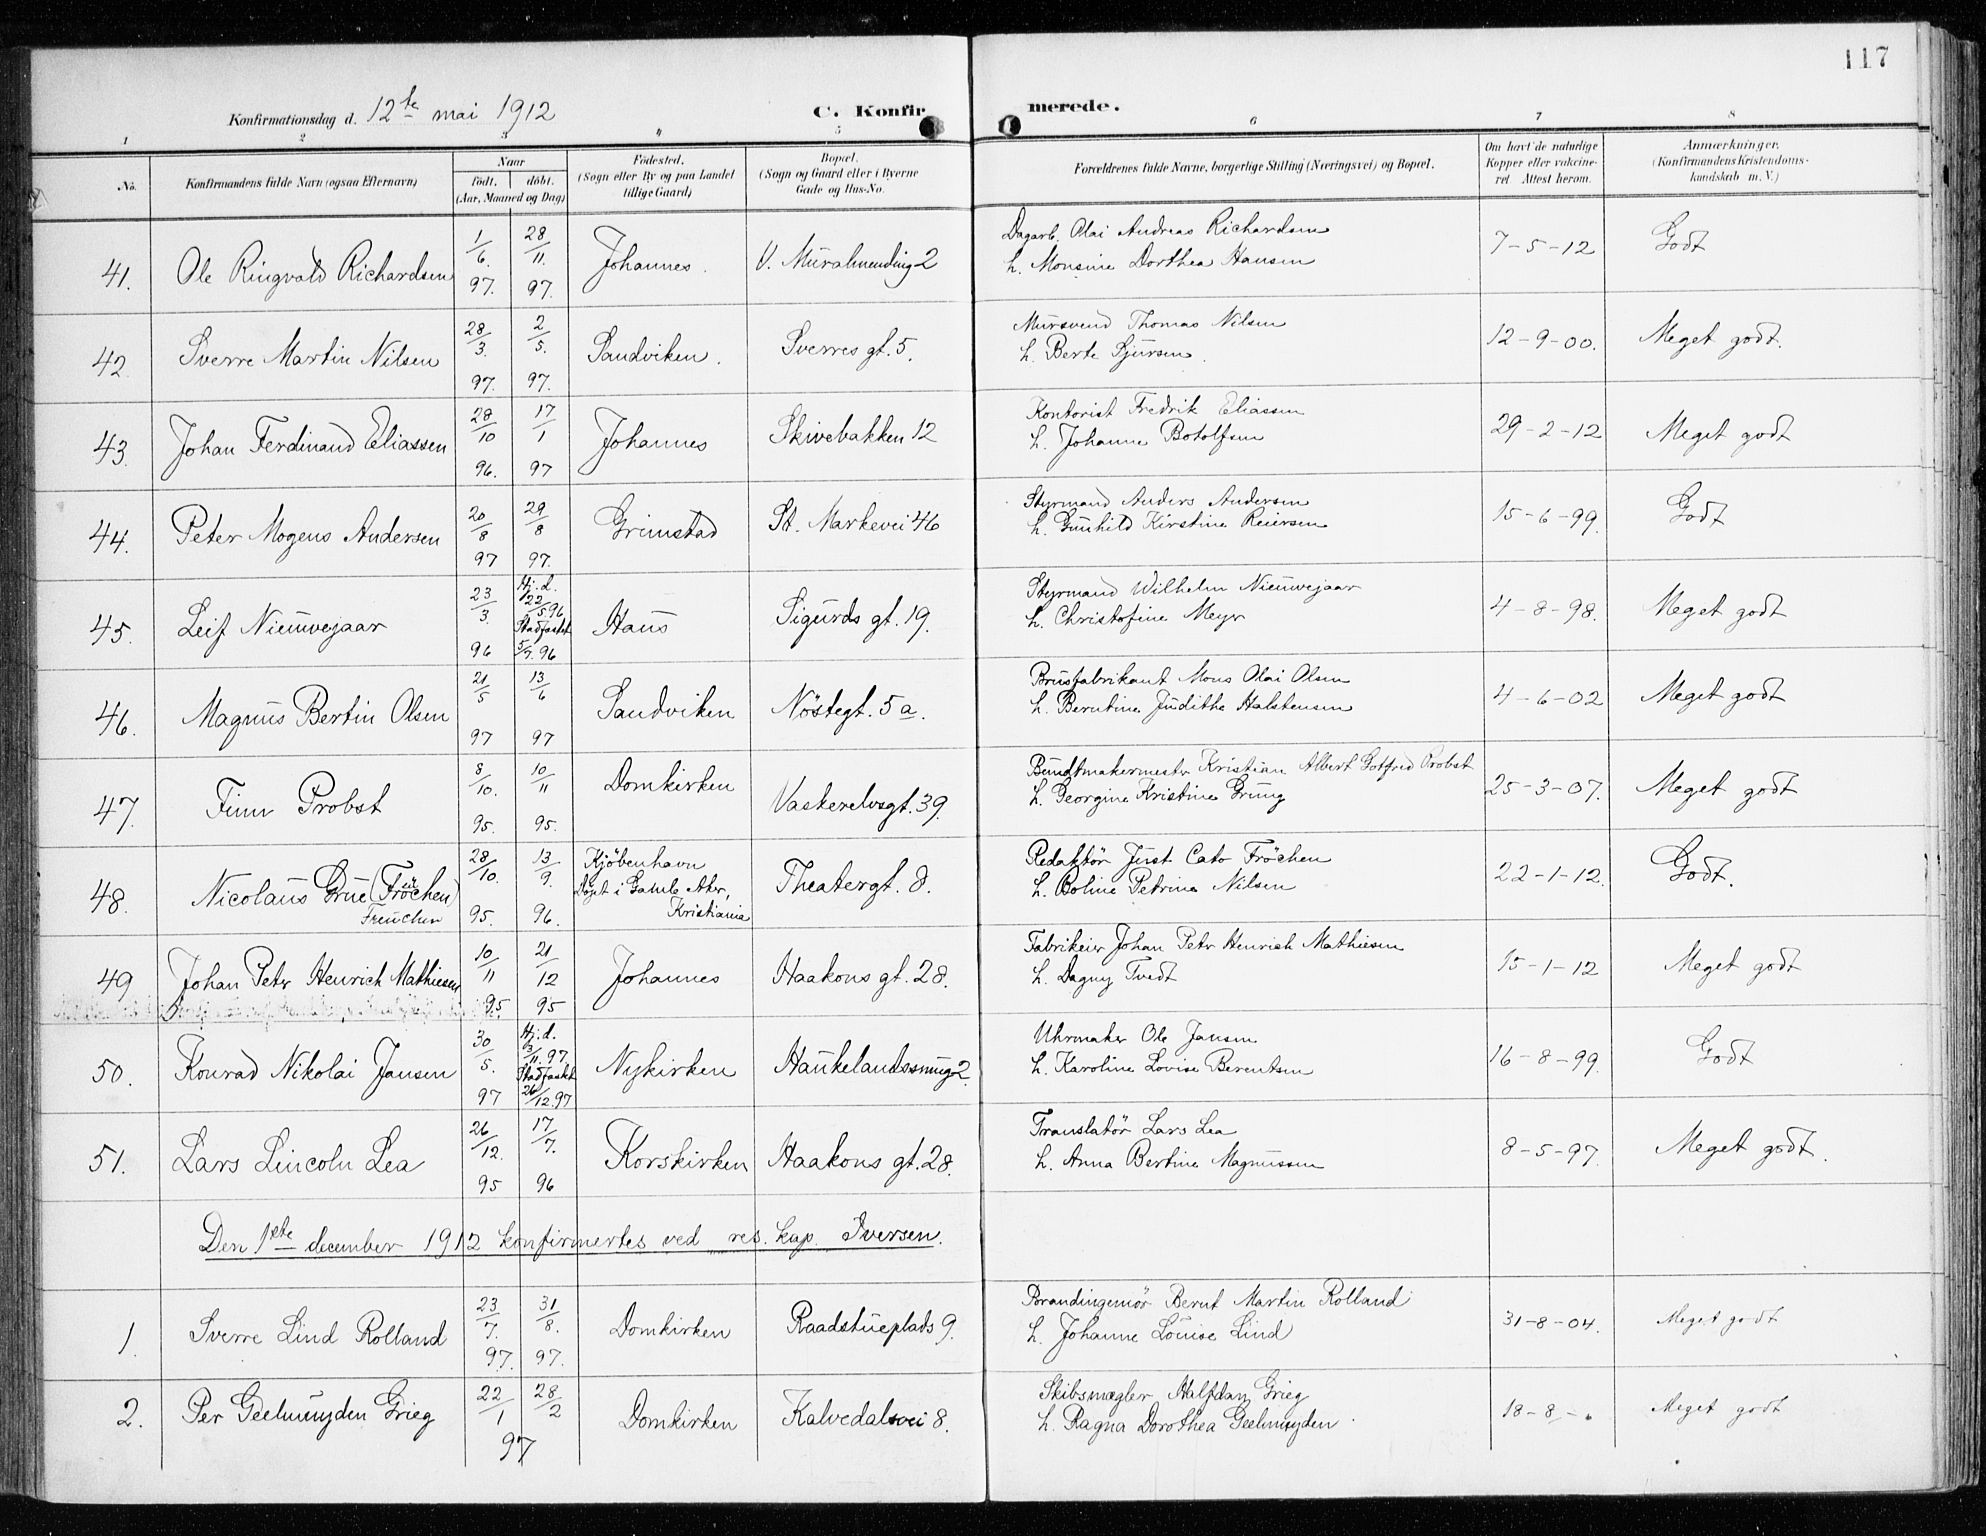 117
Konfirmationsdag d. 12te mai 1912 C. Konfir merede.
1 2 3 4 5 6 7 8
No. Konfirmandens fulde Navn (ogsaa Efternavn) Naar födt. döbt. (Aar, Maaned og Dag) Födested. (Sogn eller By og paa Landet tillige Gaard) Bopæl. (Sogn og Gaard eller i Byerne Gade og Hus-No. Forældrenes fulde Navne, borgerlige Stilling (Næringsvei) og Bopæl. Om havt de naturlige Kopper eller vakcineret. Attest herom. Anmærkninger. (Konfirmandens Kristendomskundskab m. V.)
41. Ole Ringvald Richardsen 1/6. 97. 28/11. 97. Johannes. V. Muralmending 2 Dagarb. Olai Andreas Richardsen 7-5-12 Godt
h. Monsine Dorthea Hansen
42. Sverre Martin Nilsen 28/3. 97. 2/5. 97. Sandviken. Sverres gt. 5. Mursvend Thomas Nilsen 12-9-00. Meget godt.
h. Berte Sjursen.
43. Johan Ferdinand Eliassen 28/10 96. 17/1 97 Johannes Skivebakken 12 Kontorist Fredrik Eliassen 29-2-12 Meget godt
h. Johanne Botolfsen
44. Peter Mogens Andersen 20/8 97 29/8 97. Grimstad St. Markevei 46 Styrmand Anders Andersen 15-6-99. Godt
h. Gunhild Kirstine Reiersen
45. Leif Nieuwejaar 23/3. 96 Hj. d. 22/5 96 Stadfæstet 5/7. 96 Haus Sigurds gt. 19. Styrmand Wilhelm Nieuwejaar 4-8-98. Meget godt
h. Christofine Meyer
46. Magnus Bertin Olsen 21/5 97 13/6 97 Sandviken Nöstegt. 5 a. Brusfabrikant Mons Olai Olsen 4-6-02 Meget godt
h. Berntine Judithe Halstensen
47. Finn Probst 8/10. 95. 10/11 95. Domkirken Vaskerelvsgt. 39. Bundtmakermester Kristian Albert Gotfred Probst 25-3-07. Meget godt
h. Georgine Kristine Grung
48. Nicolaus Grue (Fröchen) Freuchen 28/10. 95. 13/9. 96. Kjöbenhavn Döpt i Gamle Aker, Kristiania Theatergt. 8. Redaktör Just Cato Fröchen 22-1-12. Godt.
h. Boline Petrine Nilsen
49 Johan Peter Henrich Mathiesen 10/11 95. 21/12 95 Johannes Haakons gt. 28. Fabrikeier Johan Peter Henrich Mathiesen 15-1-12 Meget godt
h. Dagny Tvedt
50. Konrad Nikolai Jansen 30/5. 97 Hj. d. 3/11. 97. Stadfæstet 26/12. 97 Nykirken Haukelandssmug 2. Uhrmaker Ole Jansen 16-8-99. Godt
h. Karoline Lovise Berentsen
51. Lars Lincoln Lea 26/12. 95 17/7. 96 Korskirken Haakons gt. 28. Translatör Lars Lea 8-5-97. Meget godt.
h. Anna Bertine Magnussen
Den 1ste december 1912 konfirmertes ved res. kap. Iversen.
1. Sverre Lind Rolland 23/7. 97. 31/8. 97. Domkirken Raadstueplads 9. Brandingeniör Bernt Martin Rolland 31-8-04. Meget godt
h. Johanne Louise Lind
2. Per Geelmuyden Grieg 22/1 28/2 97 Domkirken Kalvedalsvei 8. Skibsmægler Halfdan Grieg 18-8-. Meget godt
h. Ragna Dorothea Geelmuyden